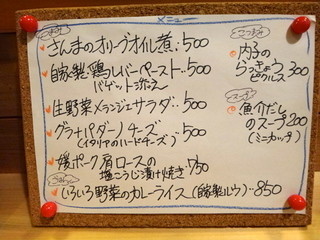 メニュー
さんまのオリーブオイル煮‥500
自家製・鶏レバーペースト‥500
バゲット添え
生野菜メランジェサラダ‥500
グラナパダーノチーズ‥500
(イタリアのハードチーズ)
媛ポーク肩ロースの
塩こうじ漬け焼き‥750
いろいろ野菜のカレーライス(自家製ルウ)‥850
内子の
らっきょう
ピクルス300
スープ
魚介だし
のスープ200
(ミニカップ)